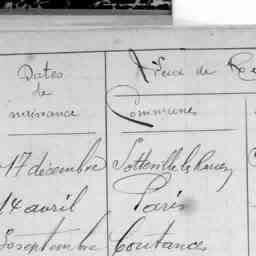 Dates
de
naissance
Lieux de
Communes
17 décembre Sotteville les Rouen
14 avril Paris
30 septembre Coutances